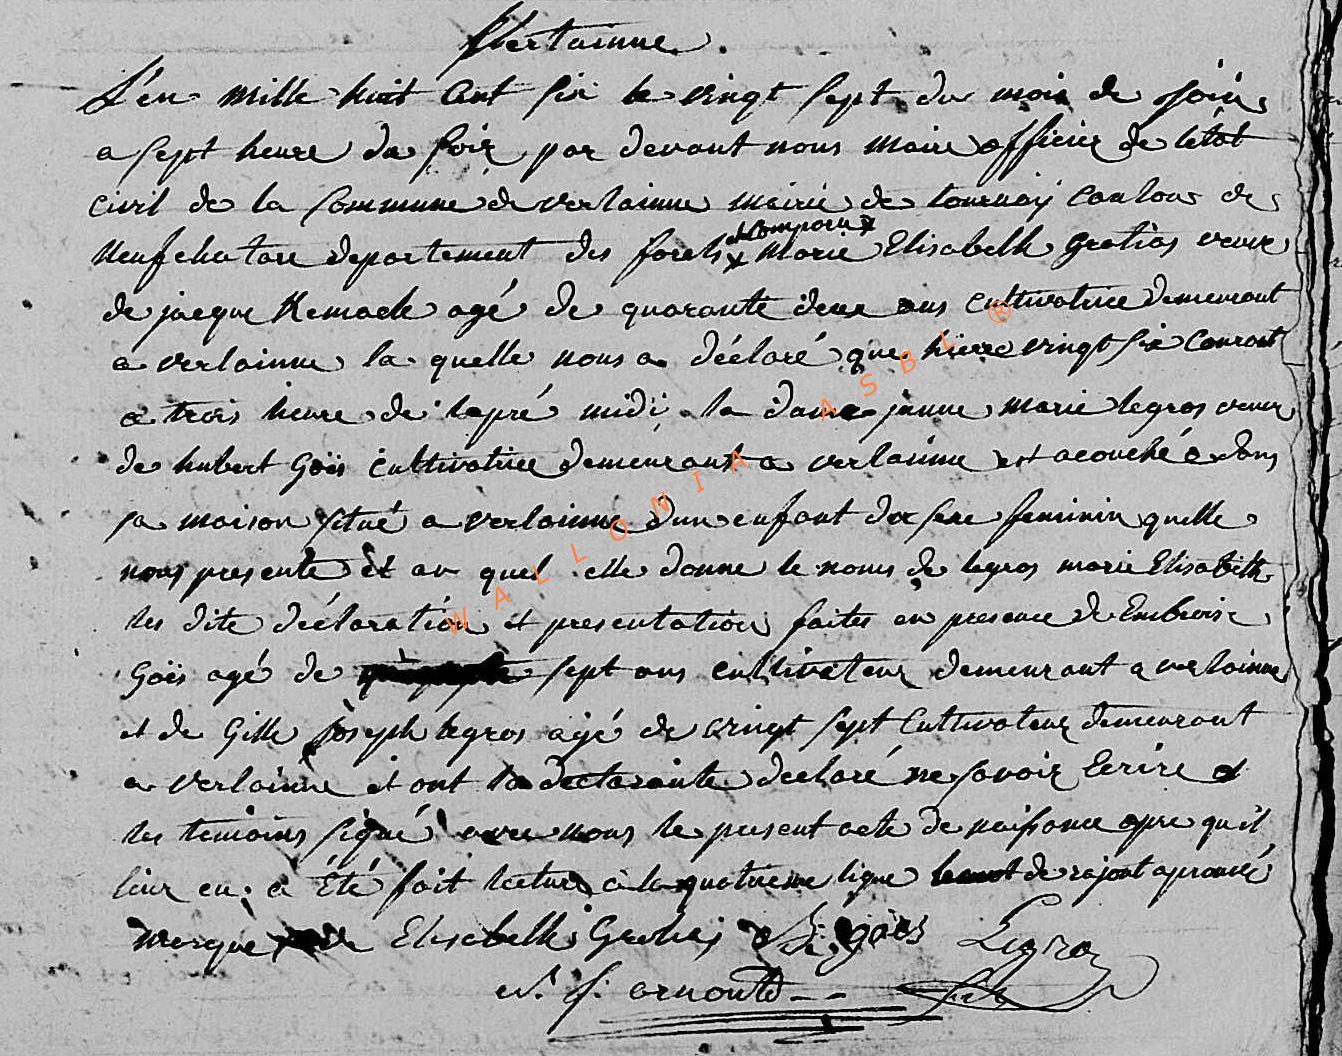 Verlainne.
L'en mille huit Cent six le vingt sept du mois de join
a sept heure du soir par devant nous maire officier de létat
civil de la Commune de verlainne mairie de tournay Canton de
neufchatau departement des forets x Marie Elisabelh Gratias veuve
x
de jacque Remacle agé de quarante deux ans Cultivatrice demeurant
a verlainne la quelle nous a déclaré que hierre vingt six Courant
a trois heure de lapré midi la dame jeanne marie legros veuve
de hubert Goës Cultivatrice demeurant a verlainne est acouché dans
sa maison situé a verlainne dun enfant du sexe feminin quelle
nous presente et au quel elle donne le noms de legros marie Elisabelh
les dite déclaration et presentation faites en presence de Embroise
Goës agé de sept ans cultivateur demeurant a verlainne
et de Gille joseph legros agé de vingt sept Cultivateur demeurant
a verlainne et ont la declarante declaré ne savoir Ecrire et
les temoins signé avec nous le present acte de naissance apre qu'il
leur en a Été fait lecture a la quatrieme ligne de rajout aprouvé
marque Elisabelh Goës Legros
N. J. arnould
WALLONIA ASBL ®